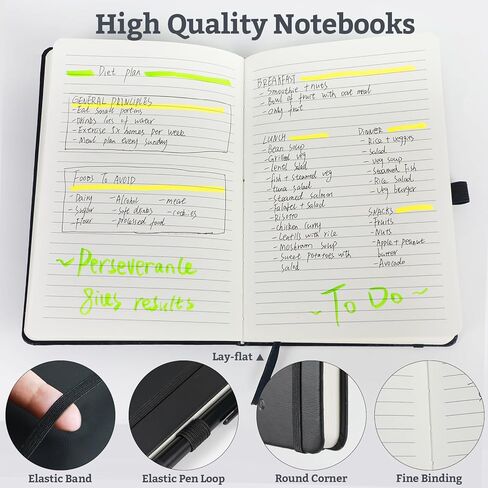 High Quality Notebooks
Diet plan
GENERAL PRINCIPLES
- Eat small portions
- Drinks lots of water
- Exercise 5x homes per week
- Meal plan every sunday
FOODS TO AVOID
- Dairy - Alcohol - meat
- Sugar - Soft drinks - cookies
- Flour - processed food
~ Perseverance
gives results
BREAKFAST
- Smoothie + nuts
- Bowl of fruit with oat meal
- Only fruit
LUNCH
- Bean soup
- Grilled veg
- Lentil salad
- fish + steamed veg
- tuna salad
- Steamed salmon
- Falafel + Salad
- Risotto
- chicken curry
- Lentills with rice
- Mushroom soup
- Sweet potatoes with
salad
DINNER
- Rice + veggies
- Salad
- Veg soup
- Steamed fish
- Rice Salad
- Veg burger
SNACKS
- Fruits
- Nuts
- Apple + peanut
butter
- Avocado
~ To Do ~
Lay-flat
Elastic Band
Elastic Pen Loop
Round Corner
Fine Binding